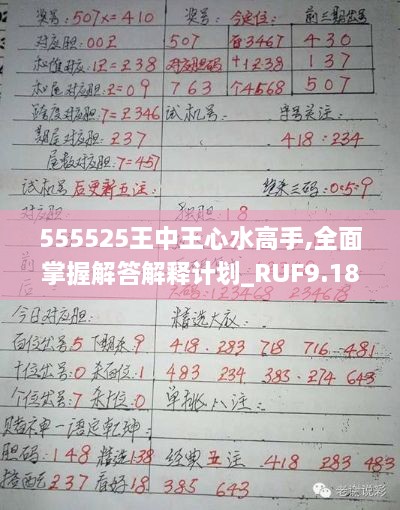 奖号:507x=410 奖号: 今定位: 前三期奖号
对应胆:002 507 百3467 430
和值对应:12=238 对应胆码 十1238 137
和尾对应胆:2=09 763 个4568 507
跨度对应胆:7=2346 试机号: 字号关注:
期尾对应胆:237 418:234
尾数对应胆:7=457
试机号后更新五注: 独胆:18 杀来三码:0:5:9
555525王中王心水高手,全面
掌握解答解释计划_RUF9.18
今日对应胆: 精选大底:
百位出号5下期来9 418.283 718 716.481
十位出号:0来百位:1 483 234 383.274 643
个位出号:7来十位:0 单挑八注:
赌彩单一语定乾坤:
胆码:148精选138 经典五注 418 283 483
237看好18 385 643
老谢说彩